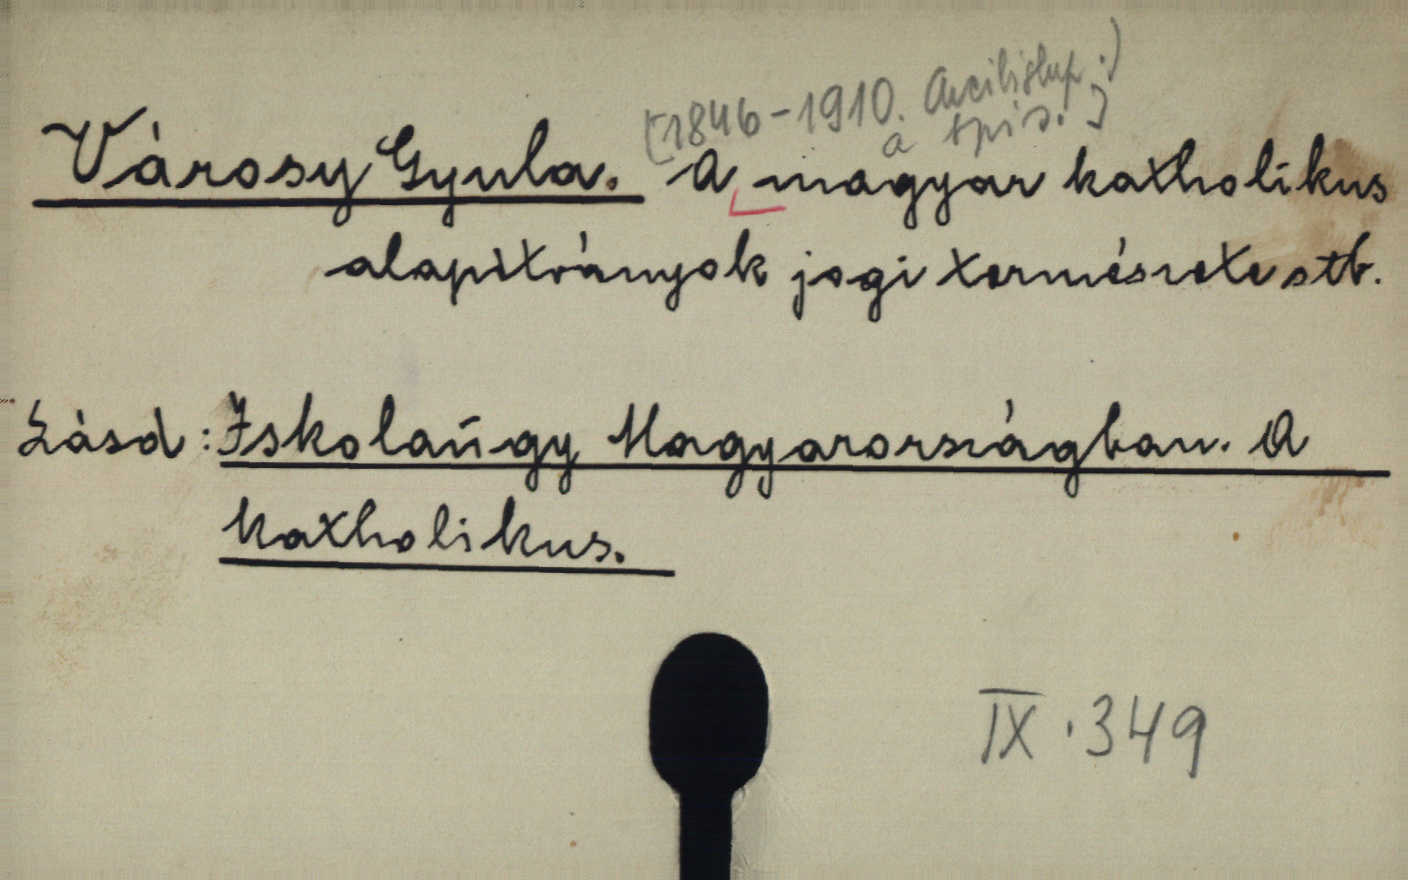 [1846-1910. Arcibiskup.)
a spis.]
Városy Gyula. A magyar katholikus
alapitványok jogi természete stb.
Lásd: Iskolaügy Magyarországban. A
katholikus.
IX.349